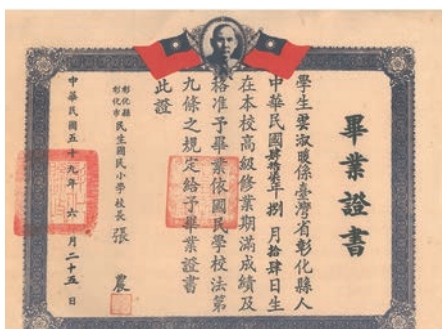 畢業證書
學生雲淑暖係臺灣省彰化縣人
中華民國肆拾柒年捌月拾肆日生
在本校高級修業期滿成績及
格准予畢業依國民學校法第
九條之規定給予畢業證書
此證
彰化縣彰化市民生國民小學校長張農
中華民國五十九年六月二十五日